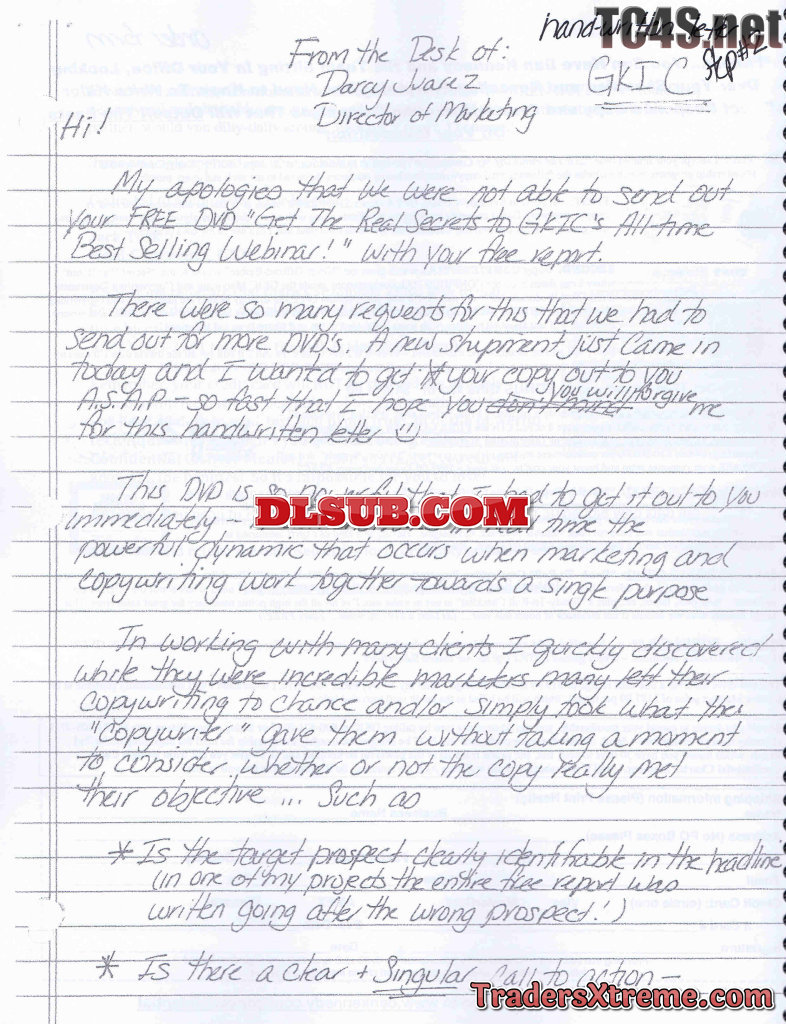 handwritten letter
TC4S.net
Step #2
From the Desk of:
GKIC
Darcy Juarez
Director of Marketing
Hi!
My apologies that we were not able to send out
your FREE DVD "Get The Real Secrets to GKIC's All-time
Best Selling Webinar!" with your free report.
There were so many requests for this that we had to
send out for more DVD's. A new shipment just came in
today and I wanted to get your copy out to you
you will forgive
A.S.A.P - so fast that I hope you don't mind me
for this handwritten letter
This DVD is so powerful that I had to get it out to you
DLSUB.COM
immediately - time the
powerful dynamic that occurs when marketing and
copywriting work together towards a single purpose
In working with many clients I quickly discovered
while they were incredible marketers many left their
copywriting to chance and/or simply took what the
"copywriter" gave them without taking a moment
to consider whether or not the copy really met
their objective ... Such as
* Is the target prospect clearly identifiable in the headline
(in one of my projects the entire free report was
written going after the wrong prospect!)
* Is there a clear + Singular call to action -
TradersXtreme.com